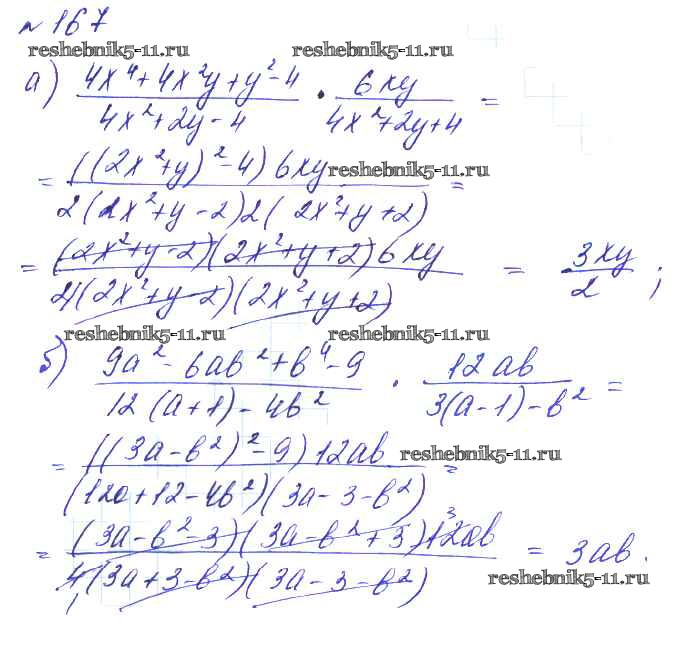 № 167
reshebnik5-11.ru reshebnik5-11.ru
а) (4x⁴+4x²y+y²-4)/(4x²+2y-4) · 6xy/(4x²+2y+4) =
= ((2x²+y)²-4)6xy/(2(2x²+y-2)2(2x²+y+2)) =
reshebnik5-11.ru
= (2x²+y-2)(2x²+y+2)6xy/(4(2x²+y-2)(2x²+y+2)) = 3xy/2 ;
reshebnik5-11.ru reshebnik5-11.ru
б) (9a²-6ab²+b⁴-9)/(12(a+1)-4b²) · 12ab/(3(a-1)-b²) =
= ((3a-b²)²-9)12ab/((12a+12-4b²)(3a-3-b²)) =
reshebnik5-11.ru
= (3a-b²-3)(3a-b²+3)12ab/(4(3a+3-b²)(3a-3-b²)) = 3ab.
reshebnik5-11.ru